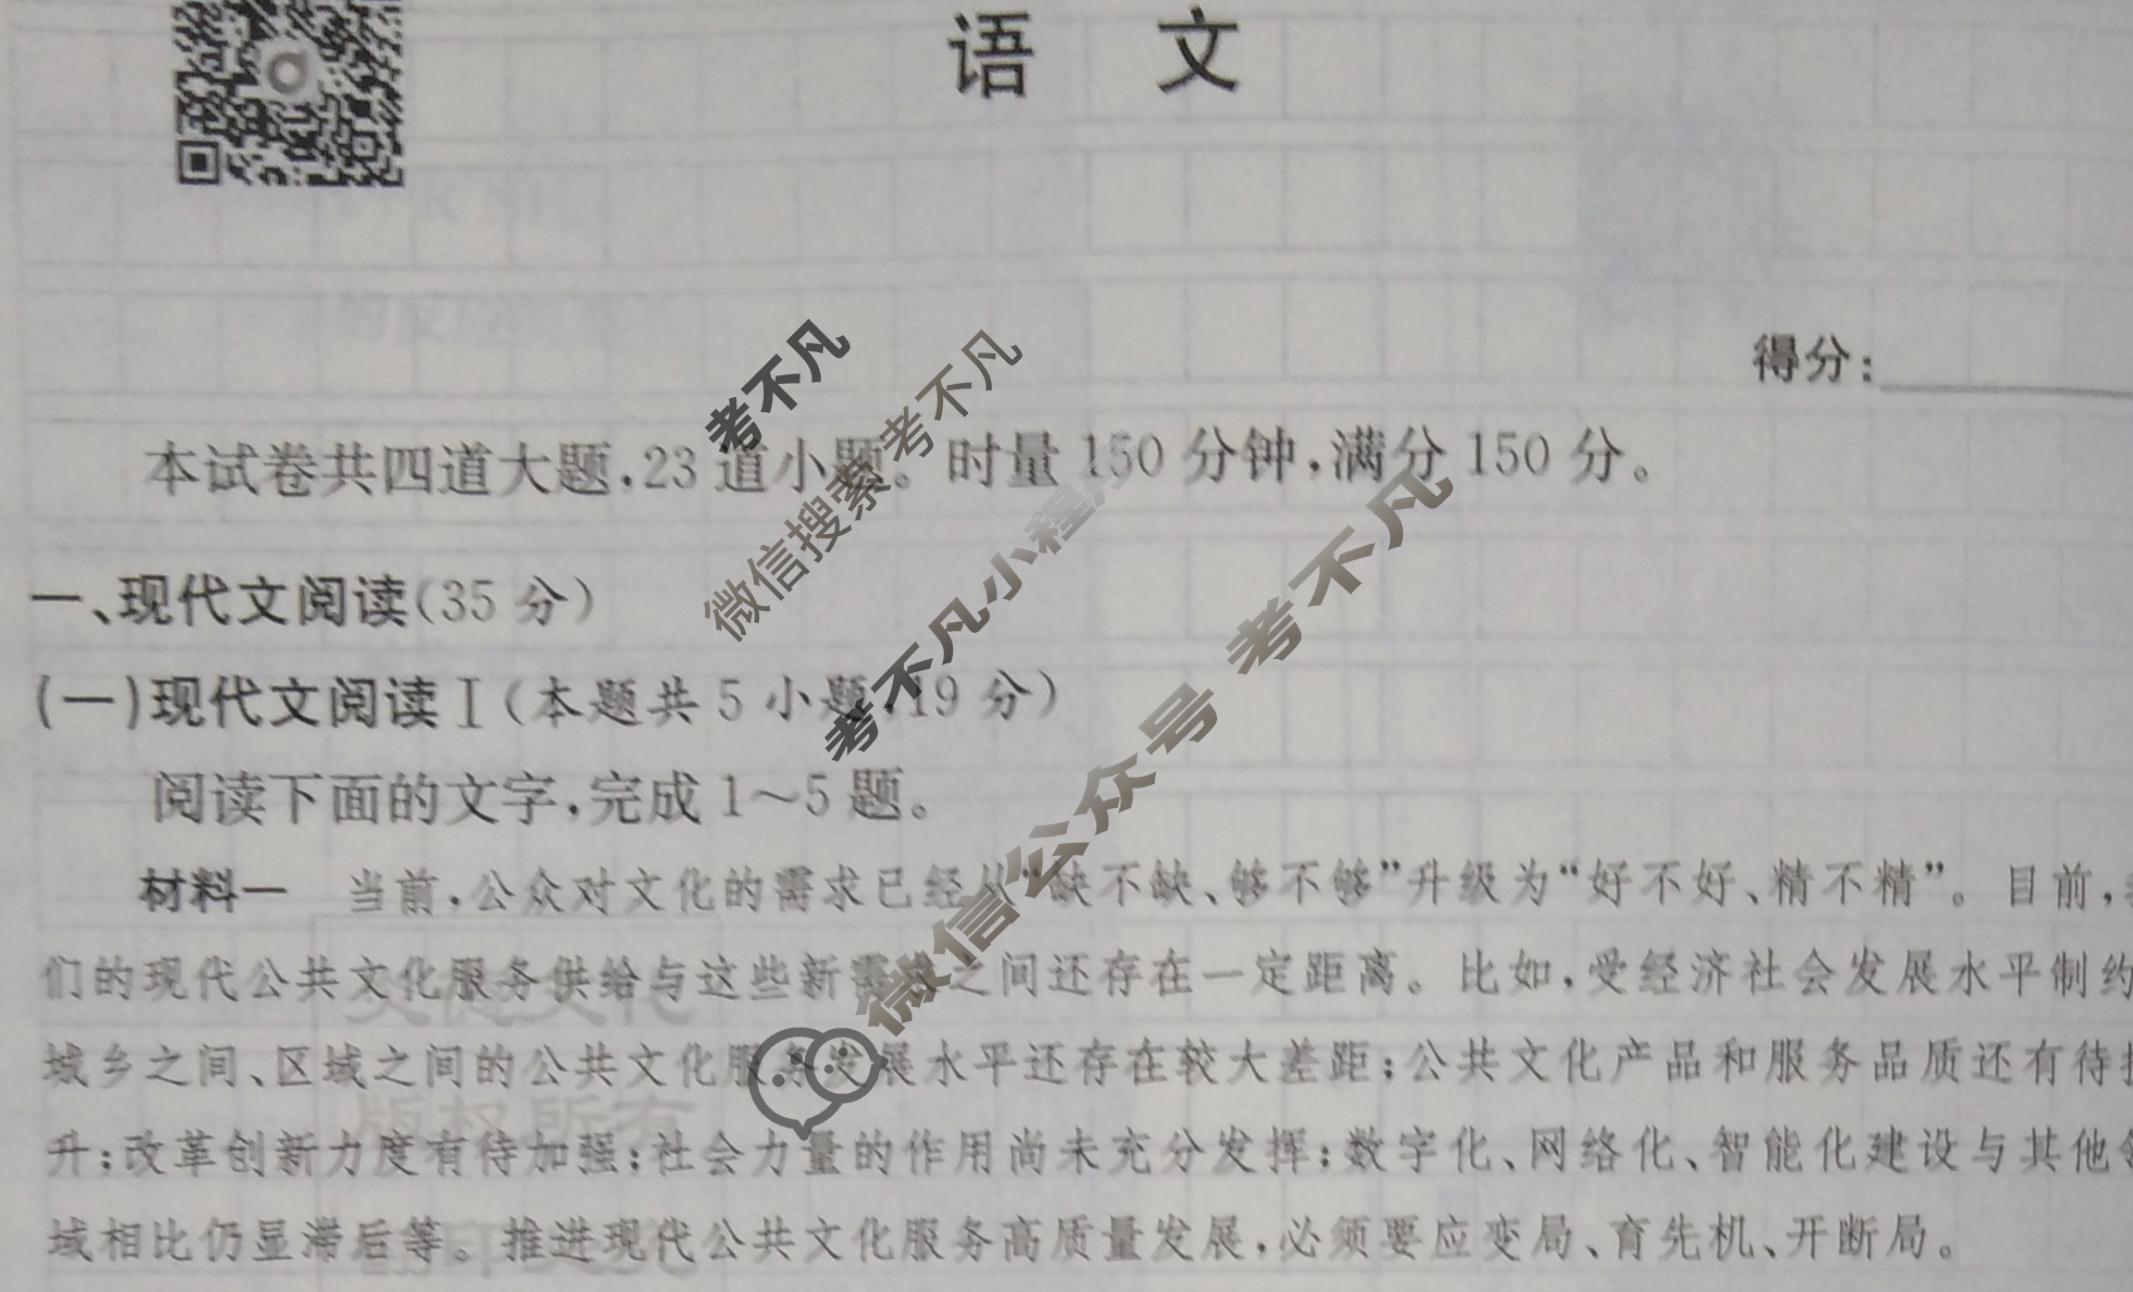 语 文
得分:
本试卷共四道大题,23道小题。时量150分钟,满分150分。
一、现代文阅读(35分)
(一)现代文阅读Ⅰ(本题共5小题,19分)
阅读下面的文字,完成1~5题。
材料一 当前,公众对文化的需求已经从“缺不缺、够不够”升级为“好不好、精不精”。目前,
们的现代公共文化服务供给与这些新需求之间还存在一定距离。比如,受经济社会发展水平制约
城乡之间、区域之间的公共文化服务发展水平还存在较大差距;公共文化产品和服务品质还有待
升;改革创新力度有待加强;社会力量的作用尚未充分发挥;数字化、网络化、智能化建设与其他
域相比仍显滞后等。推进现代公共文化服务高质量发展,必须要应变局、育先机、开断局。
考不凡
微信搜索 考不凡
考不凡小程序
微信公众号 考不凡
版权所有